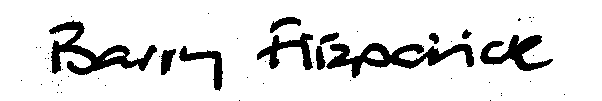 Barry Fitzpatrick